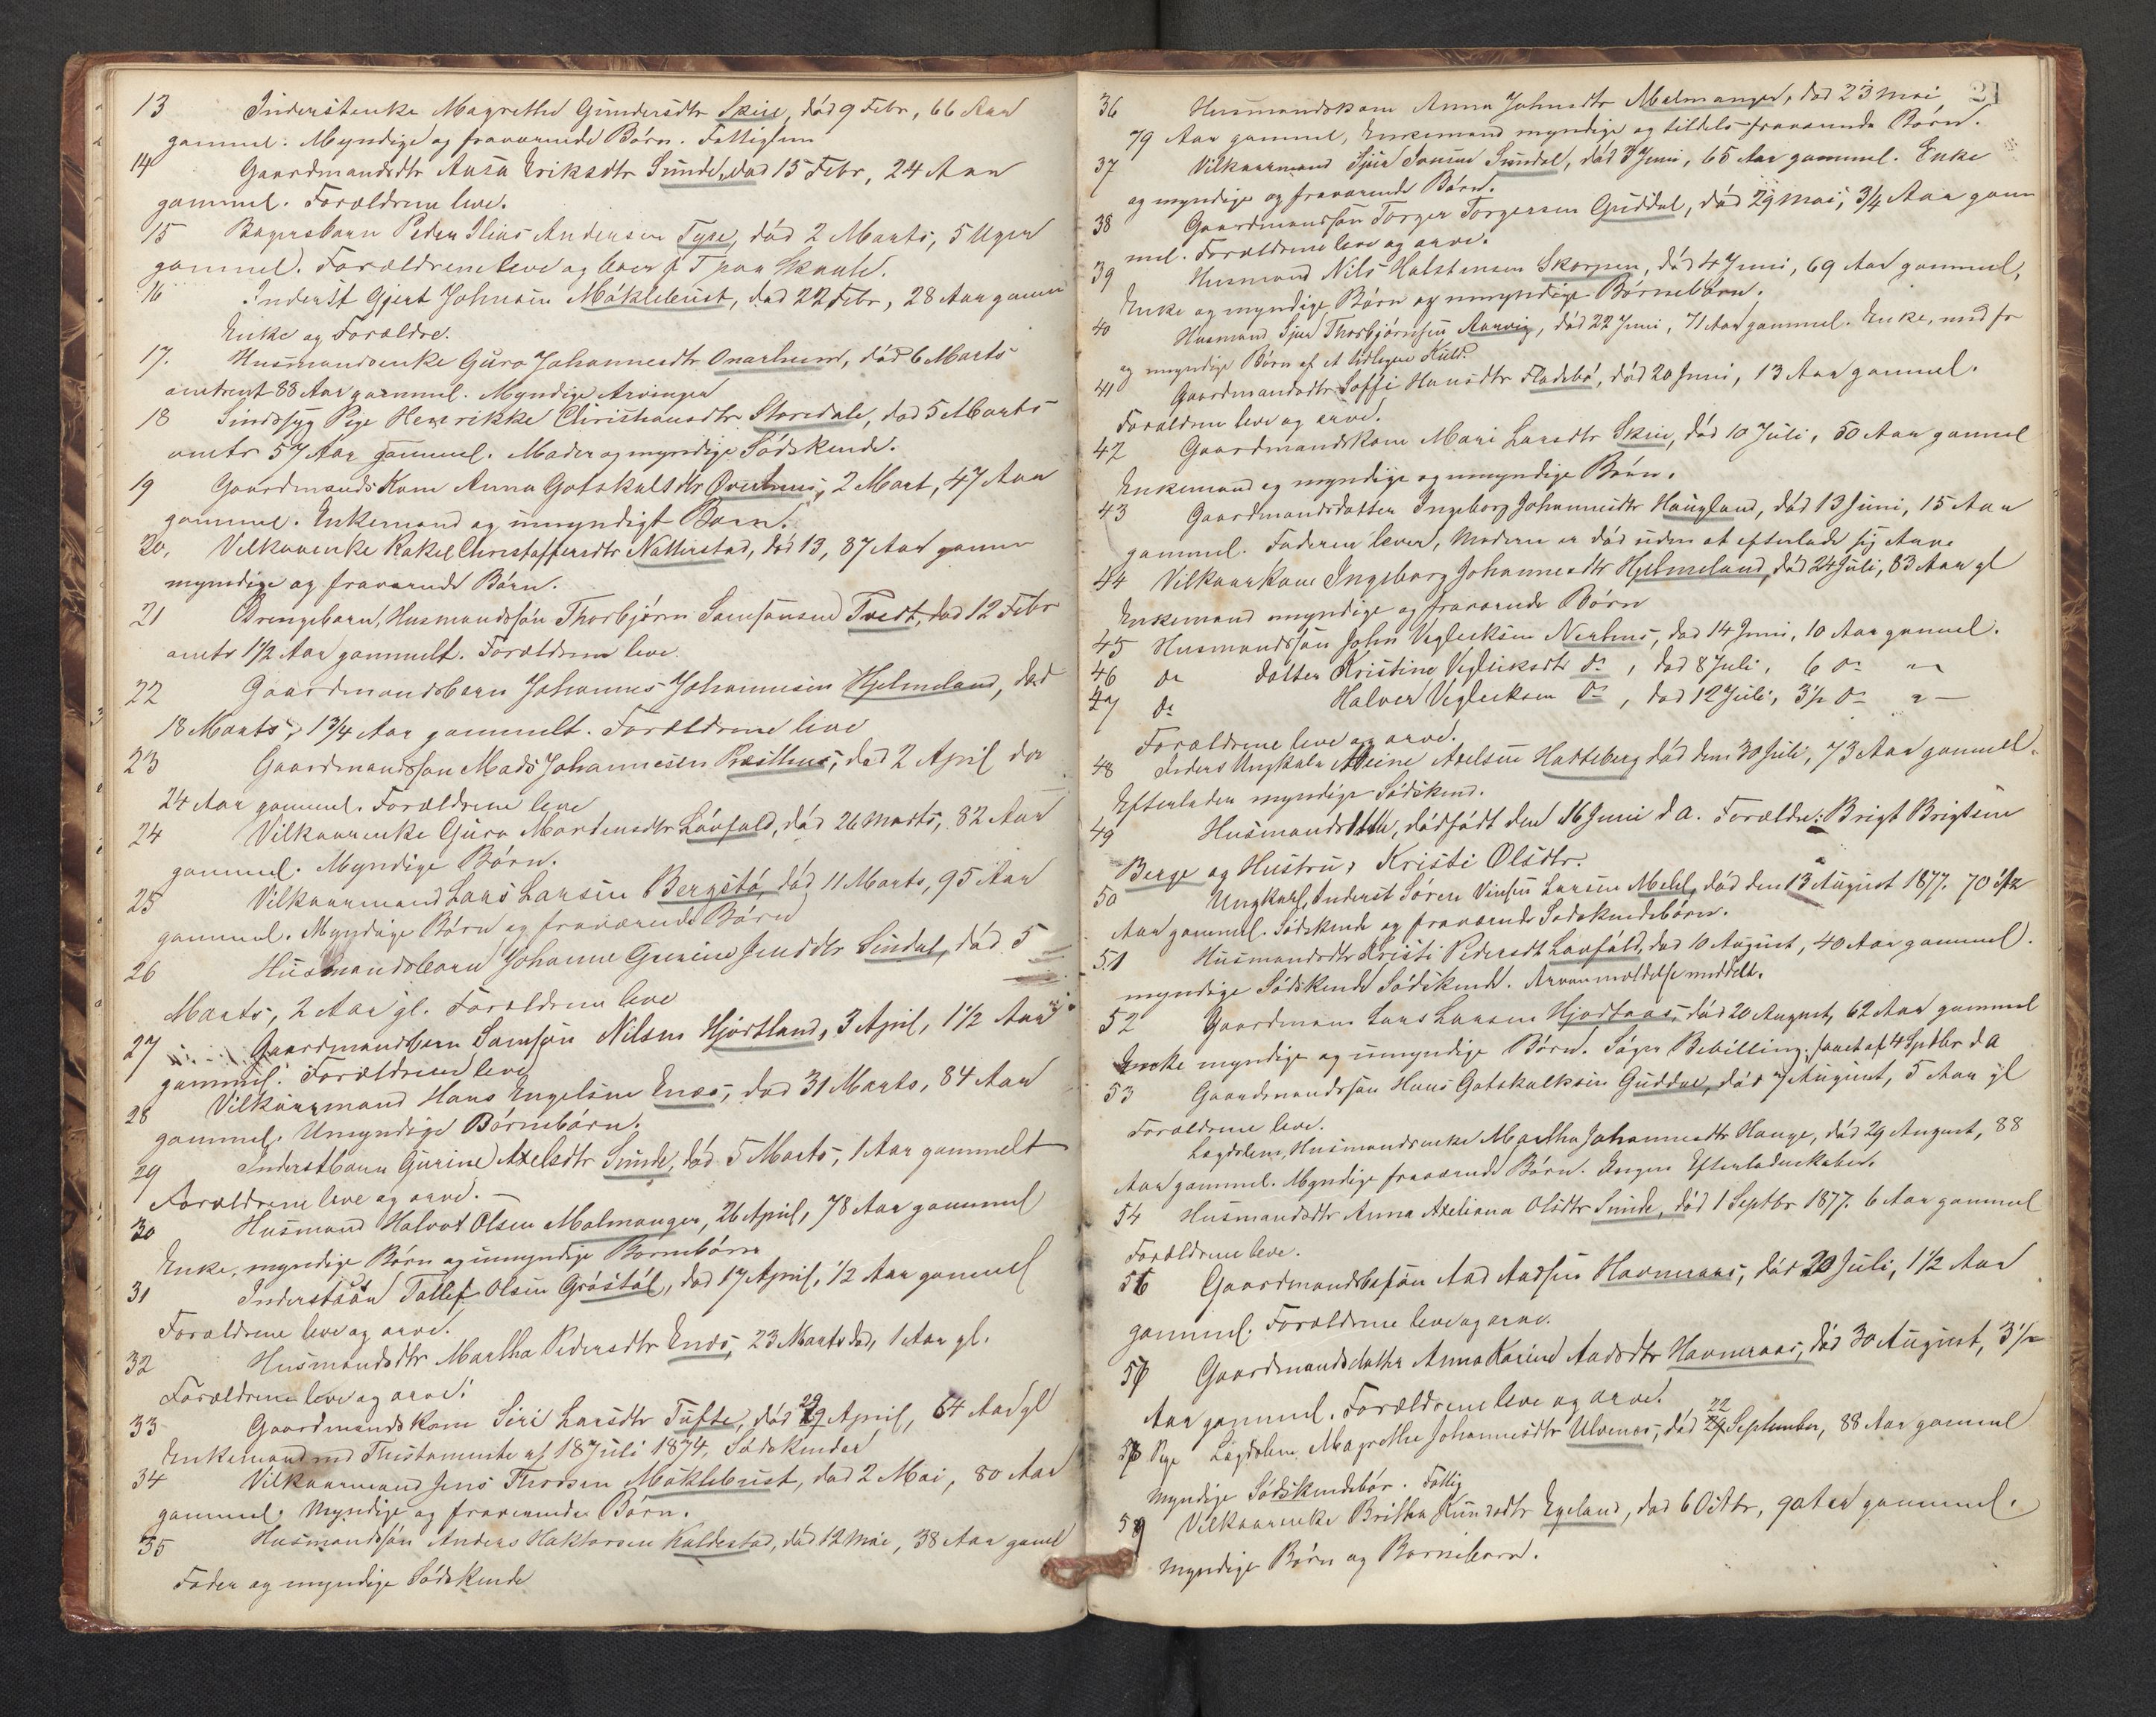 13 Inderstenke Magrethe Gundersdtr Skeie, død 9 Febr, 66 Aar
gammel. Myndige og fraværende Børn. Fattiglem
14 Gaardmandsdtr Aasa Eriksdtr Sunde, død 15 Febr, 24 Aar
gammel. Forældrene leve.
15 Bagersbarn Peder Elias Andersen Tyse, død 2 Marts, 5 Uger
gammel. Forældrene leve og boer p T paa Skaale.
16 Inderst Gjert Johnsen Møklebust, død 22 Febr, 28 Aar gamm
Enke og Forældre.
17. Husmandsenke Guro Johannesdtr Onarheim, død 6 Marts
omtrent 83 Aar gammel. Myndige Arvinger
18 Sindssyg Pige Henrikke Christiansdtr Storedale, død 5 Marts
omtr 57 Aar gammel. Moder og myndige Sødskende.
19 Gaardmands Kone Anna Gotskalsdtr Øverhuus, 2 Mart, 47 Aar
gammel. Enkemand og umyndigt Barn.
20, Vilkaarenke Rakel Christoffersdtr Natterstad, død 13, 87 Aar gamm
myndige og fraværende Børn.
21 Drengebarn, Husmandssøn Thorbjørn Samsonsen Tvedt, død 12 Febr
omtr 1 1/2 Aar gammelt. Forældrene leve.
22 Gaardmandsbarn Johannes Johannesen Hjelmeland, død
18 Marts, 1 3/4 Aar gammelt. Forældrene leve
23 Gaardmandssøn Mads Johannesen Røsthus, død 2 April do
24 Aar gammel. Forældrene leve
24 Vilkaarenke Guro Mordensdtr Løvfald, død 26 Marts, 82 Aar
gammel. Myndige Børn.
25 Vilkaarmand Lars Larsen Bergstø, død 11 Marts, 95 Aar
gammel. Myndige Børn og fraværende Børn
26 Husmandsbarn Johanne Gurine Jensdtr Sundal, død 5
Marts, 2 Aar gl. Forældrene leve
27 Gaardmandsbarn Samson Nilsen Hjortland, 3 April, 1 1/2 Aar
gammel. Forældrene leve
28 Vilkaarmand Hans Engelsen Enæs, død 31 Marts, 84 Aar
gammel. Umyndige Børnebørn.
29 Inderstbarn Gurine Axelsdtr Sunde, død 5 Marts, 1 Aar gammelt
Forældrene leve og arve. —
30 Husmand Halvor Olsen Malmanger, 26 April, 78 Aar gammel
Enke, myndige Børn og umyndige Børnebørn
31 Inderstsøn Tollef Olsen Grøstøl, død 17 April, 1/2 Aar gammel
Forældrene leve og arve.
32 Husmandsdtr Martha Pedersdtr Enæs, 23 Marts død, 1 Aar gl.
Forældrene leve og arve.
33 Gaardmandskone Siri Larsdtr Tufte, død 29 April, 64 Aar gl
Enkemand med Thestamente af 18 Juli 1874, Sødskender
34 Vilkaarmand Jens Thorsen Møklebust, død 2 Mai, 80 Aar
gammel. Myndige og fraværende Børn.
35 Husmandssøn Anders Haktorsen Kaldestad, død 12 Mai, 38 Aar gaml
Fader og myndige Sødskende
21
36 Husmandskone Anna Johnsdtr Malmanger, død 23 Mai
79 Aar gammel, Enkemand myndige og tildels fraværende Børn.
37 Vilkaarmand Sjur Sundal, død 3 Juni, 65 Aar gammel. Enke
og myndige og fraværende Børn.
38 Gaardmandssøn Torger Torgersen Guddal, død 29 Mai, 3/4 Aar gam
mel. Forældrene leve og arve.
39 Husmand Nils Halstensen Skorpen, død 4 Juni, 69 Aar gammel,
Enke og myndige Børn og umyndige Børnebørn.
40 Husmand Sjur Thorbjørnsen Aarvig, død 22 Juni, 71 Aar gammel. Enke,
og myndige Børn af et tidligere Kuld.
41 Gaardmandsdtr Soffi Hansdtr Fladebø, død 20 Juni, 13 Aar gammel.
Forældrene leve og arve.
42 Gaardmandskone Mari Larsdtr Skeie, død 10 Juli, 50 Aar gammel
Enkemand og myndige og umyndige Børn.
43 Gaardmandsdatter Ingeborg Johannesdtr Haugland, død 13 Juni, 15 Aar
gammel. Faderen lever, Moderen er død uden at efterlade sig Arve
44 Vilkaarkone Ingeborg Johannesdtr Hjelmeland, død 24 Juli, 83 Aar gl
Enkemand myndige og fraværende Børn
45 Husmandssøn John Vigleiksen Nerhus, død 14 Juni, 10 Aar gammel.
46 do datter Kristine Vigleiksdtr do, død 8 Juli, 6 do —
47 do Halvor Vigleiksen do, død 12 Juli, 3 1/2 do —
Forældrene leve og arve.
48 Inders Ungkale Axelsen Hatteberg død den 30 Juli, 73 Aar gammel.
Efterlader myndige Sødskend.
49 Husmands, dødfødt den 16 Juni d A. Forældre: Brigt Brigtsen
Berge og Hustru, Kristi Olsdtr.
50 Ungkarl, Inderst Søren Larsen Mehl, død den 13 August 1877. 70 1/2
Aar gammel. Sødskende og fraværende Sødskendebørn.
51 Husmandsdtr Kristi Pedersdt Løvfald, død 10 August, 40 Aar gammel.
myndige Sødskende Sødskende. Arveanmeldelse meddelt.
52 Gaardmand Lars Larsen Hjortaas, død 20 August, 62 Aar gammel
Enke myndige og umyndige Børn. Søger Bevilling, faaet af 4 Sptbr d A
53 Gaardmandssøn Hans Gotskalksen Guddal, død 7 August, 5 Aar gl
Forældrene leve.
Lægdslem, Husmandsenke Martha Johannesdtr Hauge, død 29 August, 88
Aar gammel. Myndige fraværende Børn. Ingen Efterladenskaber.
54 Husmandsdtr Anna Axeliana Olsdtr Sunde, død 1 Septbr 1877. 6 Aar gammel
Forældrene leve.
56 Gaardmandssøn Aad Aadsen Havneraas, død 20 Juli, 1 1/2 Aar
gammel. Forældrene leve og arve.
57 Gaardmandsdatter Anna Karine Aadsdtr Havneraas, død 30 August, 3 1/2
Aar gammel. Forældrene leve og arve.
58 Pige Lægdslem Magrethe Johannesdtr Ulvenæs, død 22 September, 88 Aar gammel
Myndige Sødskendebør. Fattig
59 Vilkaarenke Britha Knudsdtr Egeland, død 6 Octbr, 90 Aar gammel.
Myndige Børn og Børnebørn.